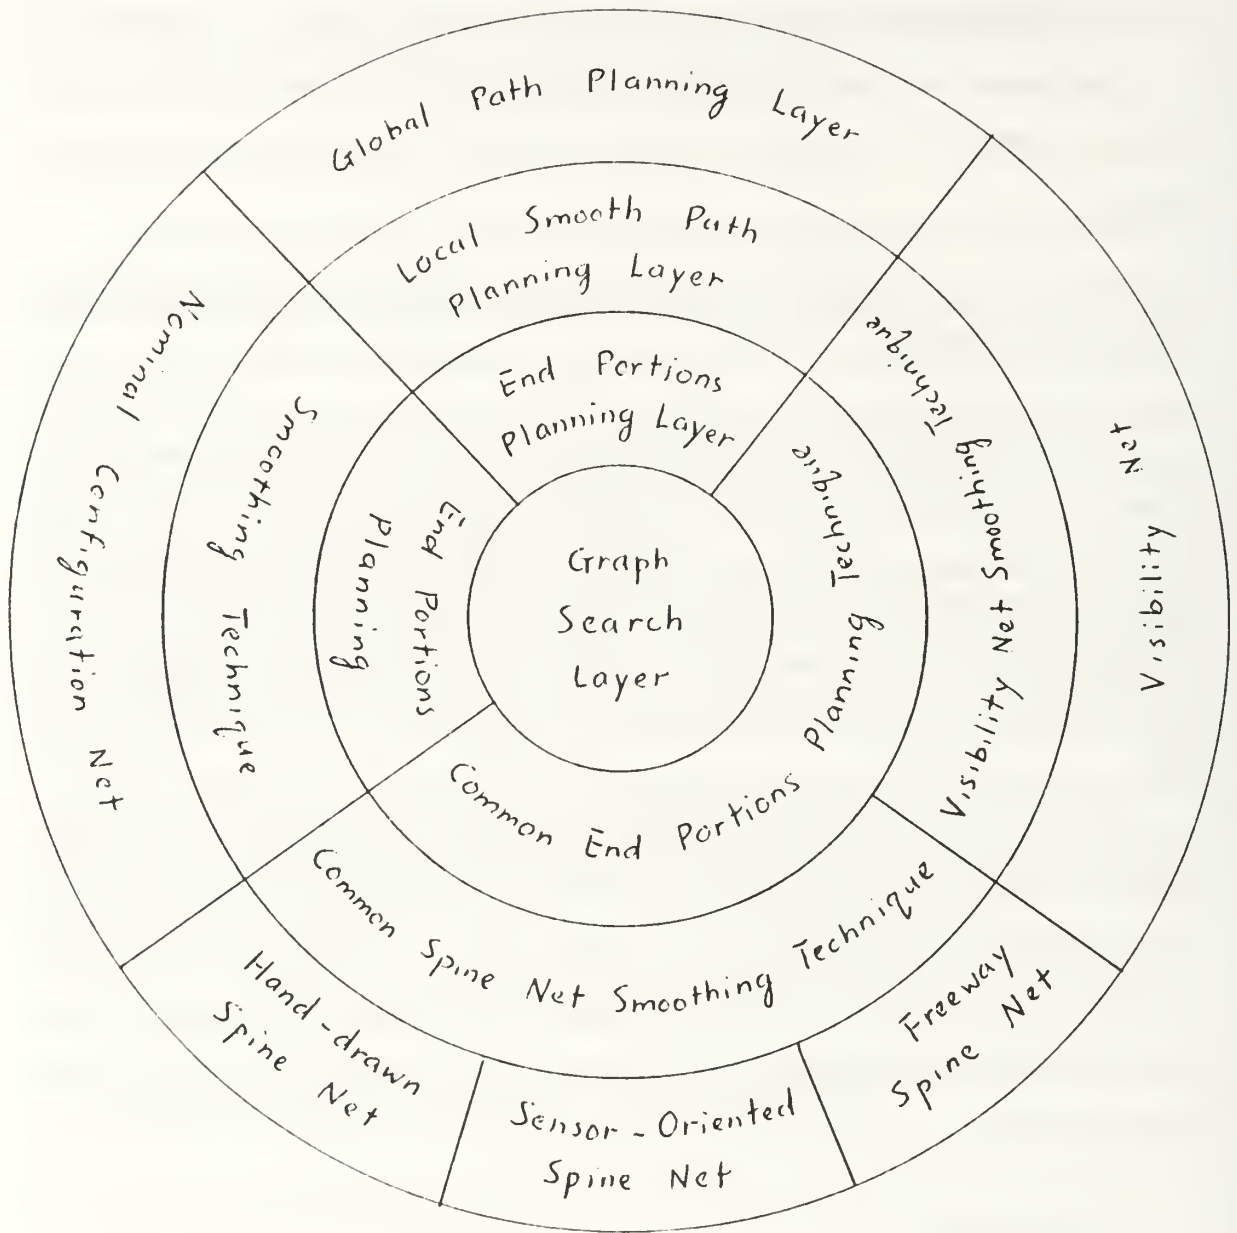 Global Path Planning Layer
Local Smooth Path
Planning Layer
End Portions
Planning Layer
Graph
Search
Layer
Nominal Configuration Net
Smoothing Technique
End Portions
Planning
Visibility Net
Visibility Net Smoothing Technique
Common End Portions Planning Technique
Common Spine Net Smoothing Technique
Hand-drawn
Spine Net
Sensor-Oriented
Spine Net
Freeway
Spine Net